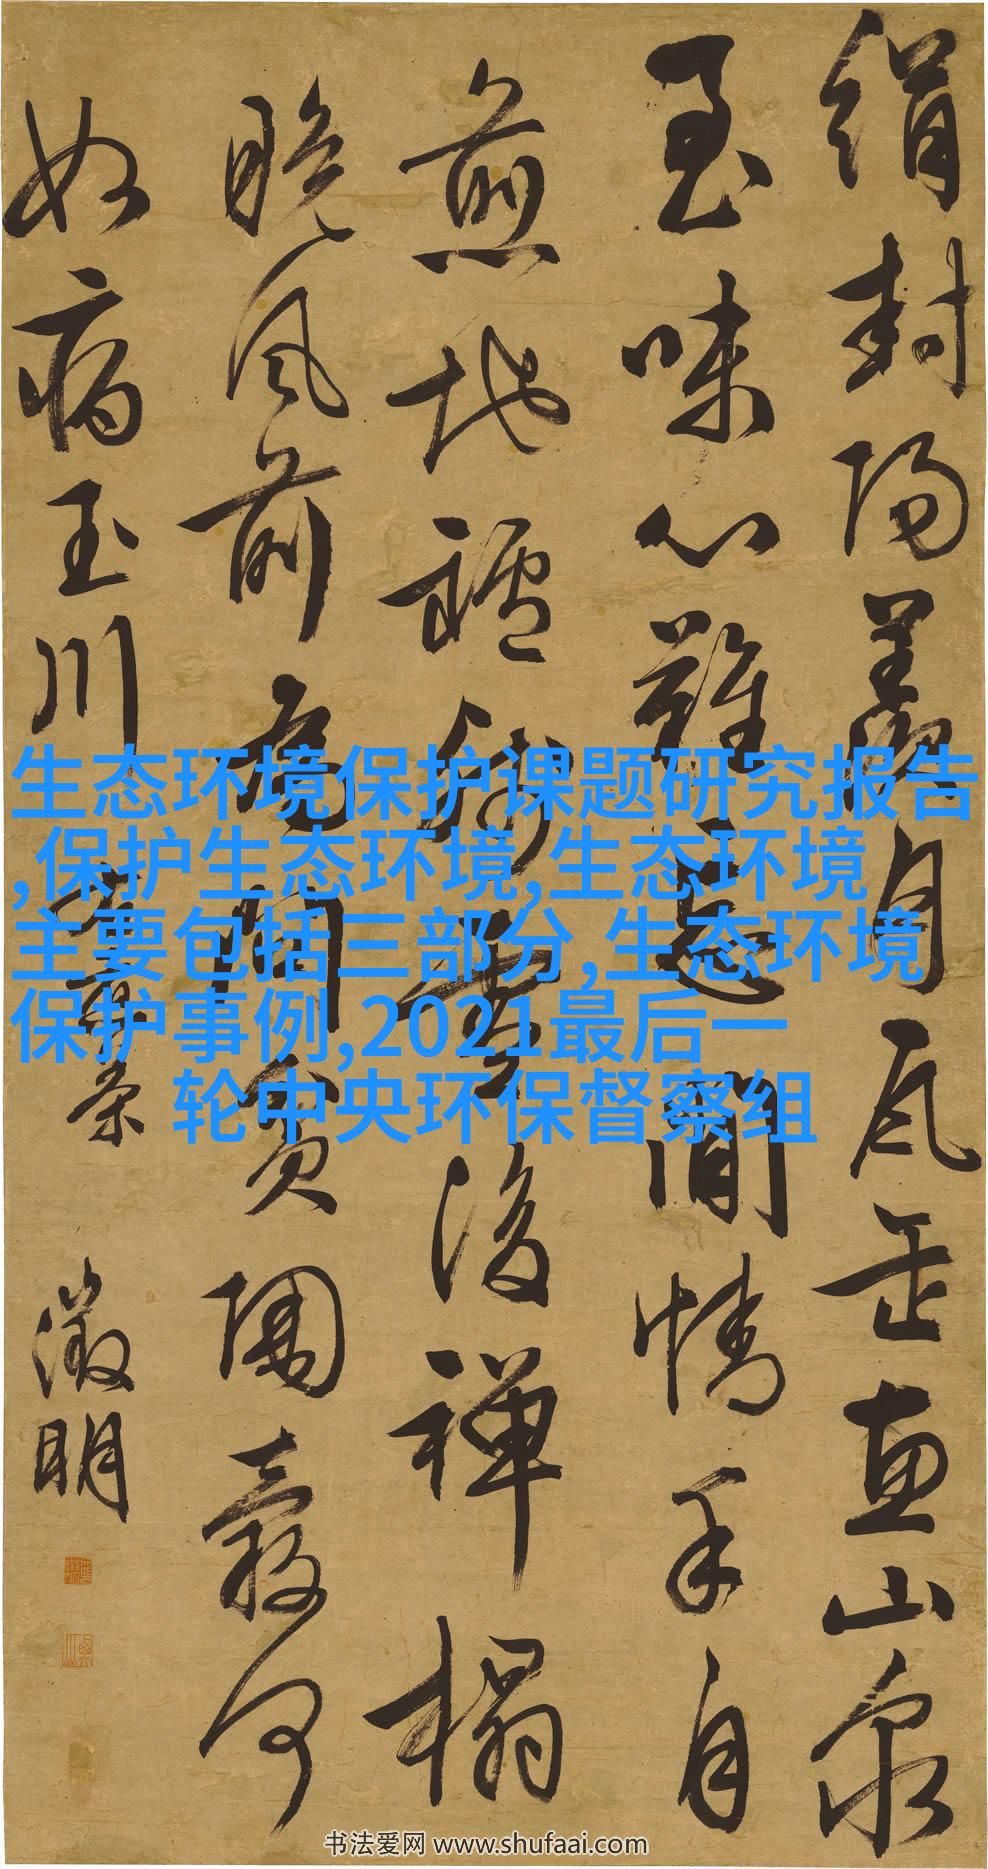 絹封陽羡月瓦缶惠山泉
至味心難忘閒情手自
煎地爐殘雪後禪榻
晚風前為問貧陶穀何
如病玉川 煮茶 徵明
生态环境保护课题研究报告
,保护生态环境,生态环境
主要包括三部分,生态环境
保护事例,2021最后一
轮中央环保督察组
书法爱网 www.shufaai.com